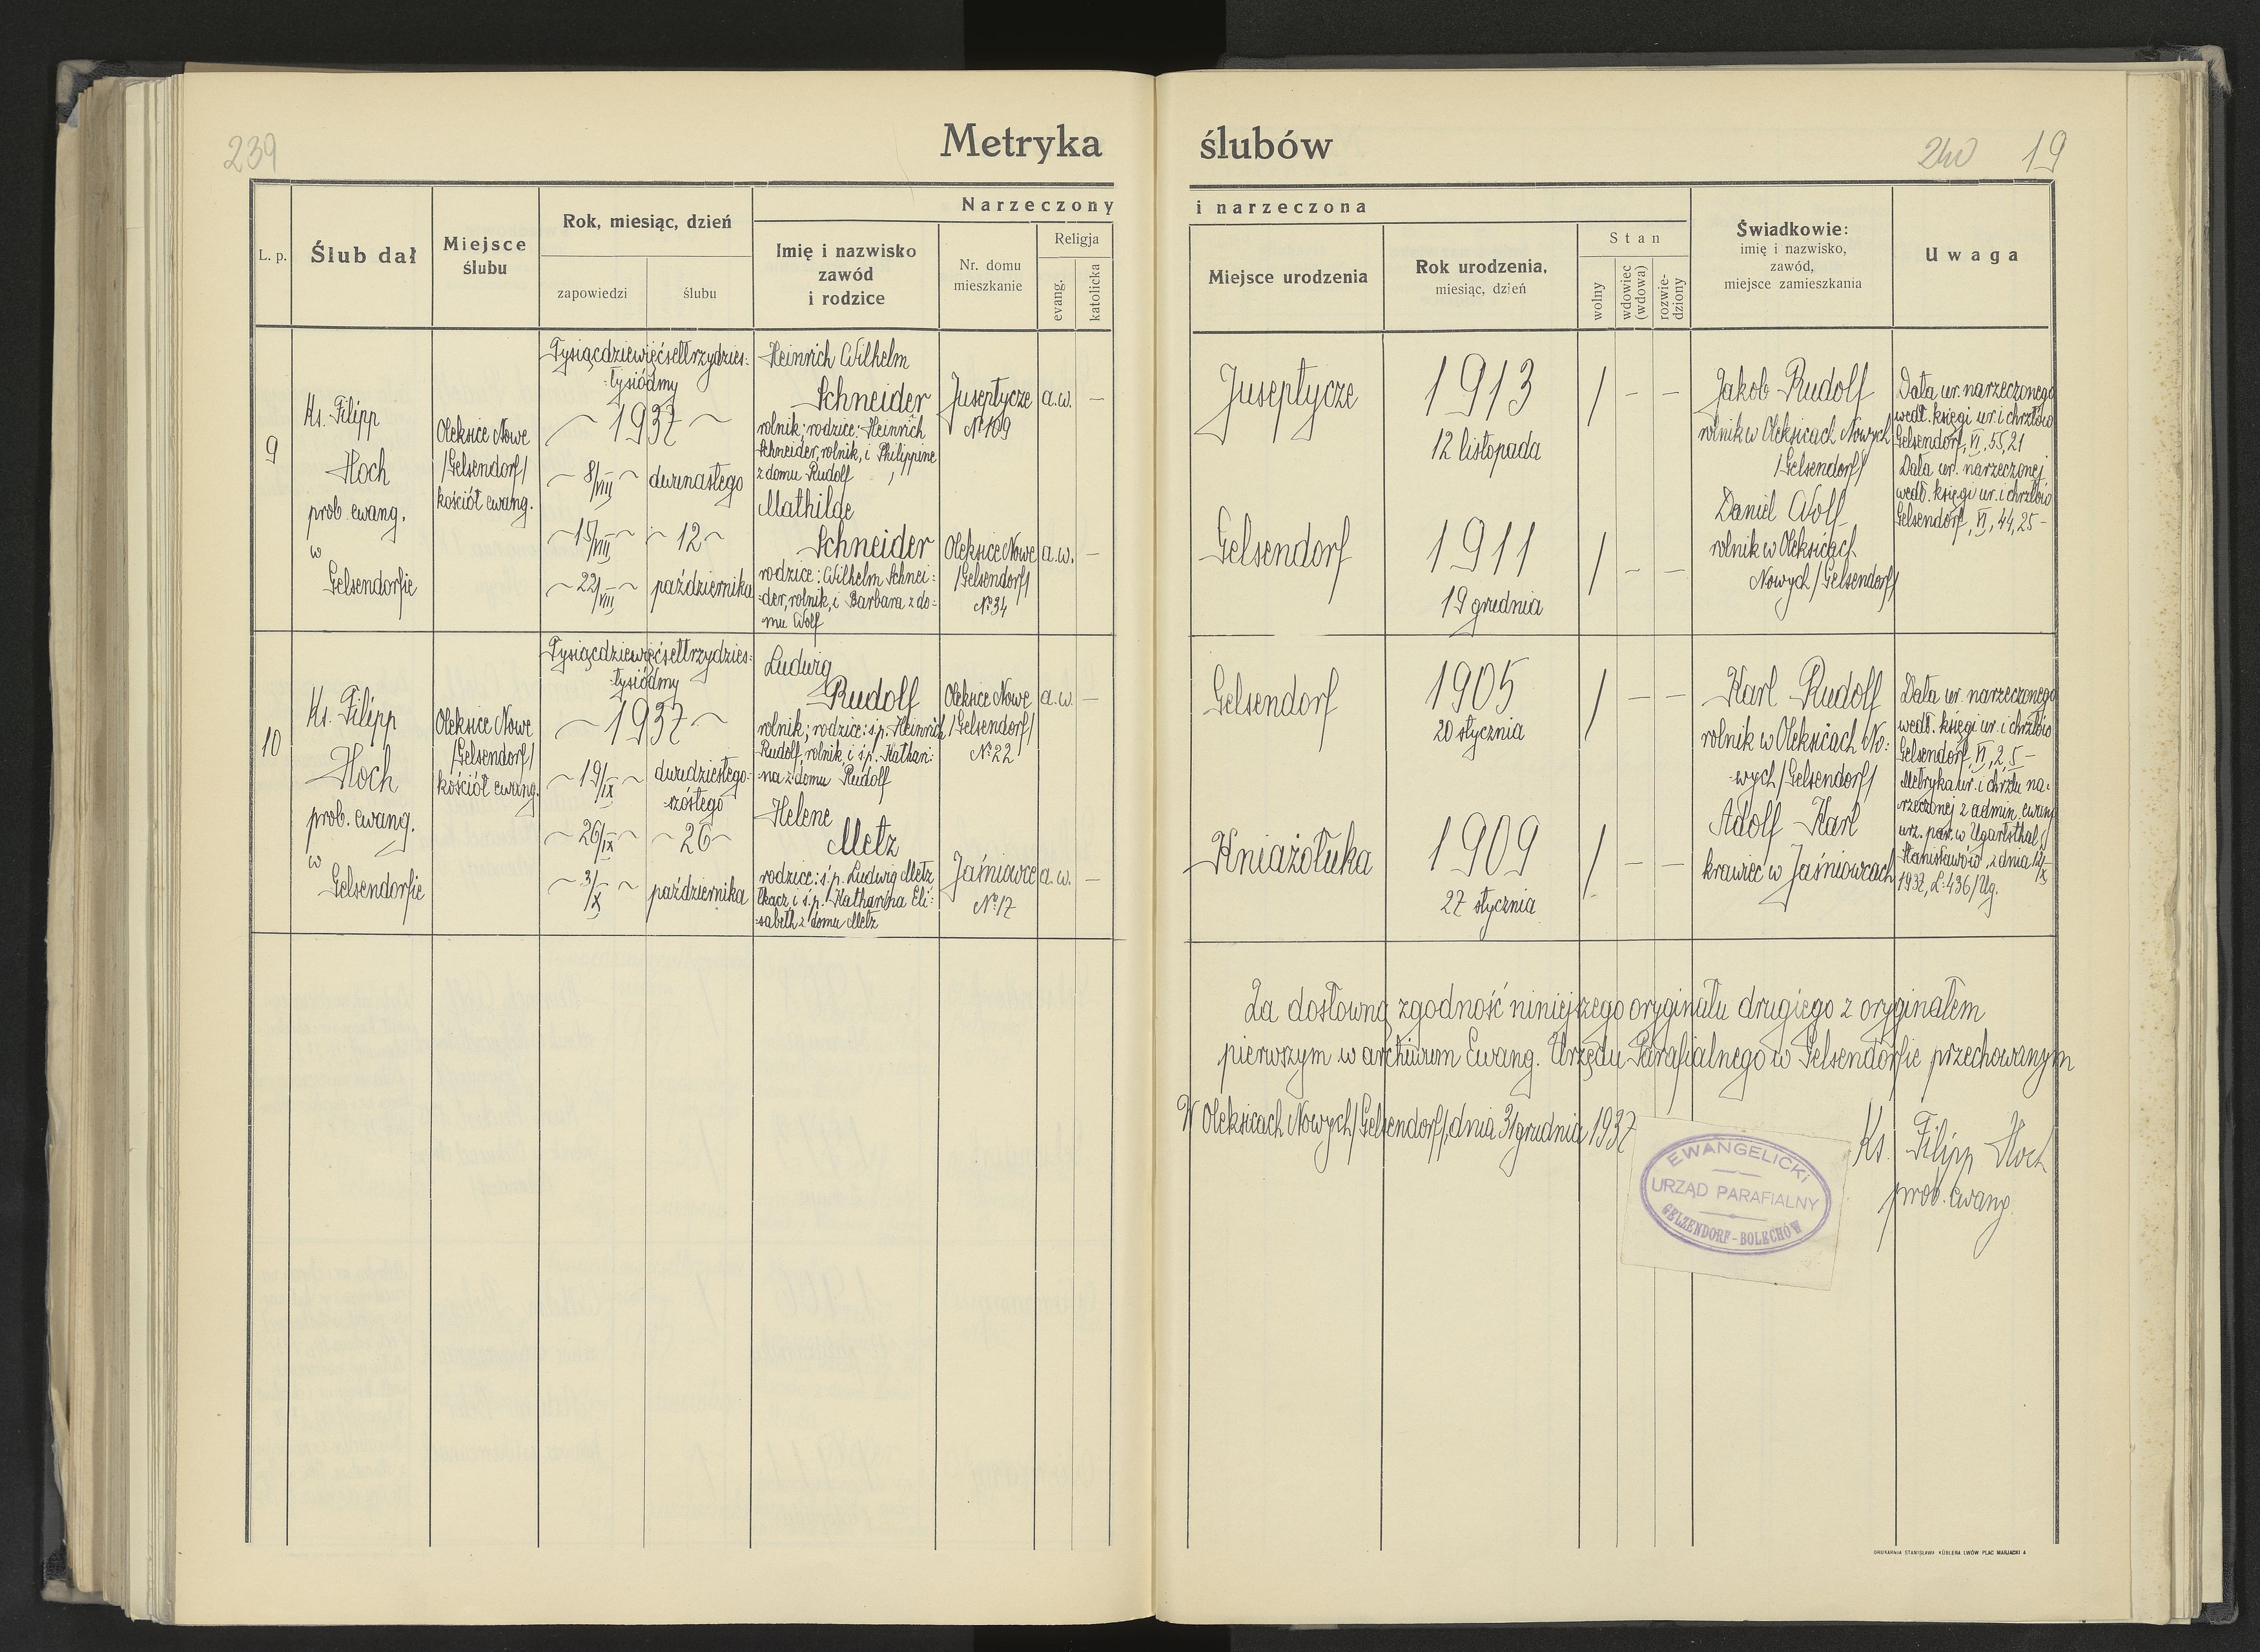 239
Metryka
ślubów
240 19
L. p.
Ślub dał
Miejsce
ślubu
Rok, miesiąc, dzień
zapowiedzi
ślubu
Narzeczony
Imię i nazwisko
zawód
i rodzice
Nr. domu
mieszkanie
Religja
evang.
katolicka
i narzeczona
Miejsce urodzenia
Rok urodzenia,
miesiąc, dzień
Stan
wolny
wdowiec
(wdowa)
rozwie-
dziony
Świadkowie:
imię i nazwisko,
zawód,
miejsce zamieszkania
Uwaga
9
Ks. Filipp
Hoch
prob. ewang.
w
Gelsendorfie
Oleksice Nowe
/Gelsendorf/
kościół ewang.
Tysiącdziewięćsettrzydzies-
tysiódmy
~ 1937 ~
~ 8/VIII ~
~ 15/VIII ~
~ 22/VIII ~
dwunastego
~ 12 ~
października
Heinrich Wilhelm
Schneider
rolnik; rodzice: Heinrich
Schneider, rolnik, i Philippine
z domu Rudolf
Juseptycze
№ 109
a.w.
–
Mathilde
Schneider
rodzice: Wilhelm Schnei-
-der, rolnik, i Barbara z do-
mu Wolf
Oleksice Nowe
/Gelsendorf/
№ 34
a.w.
–
Juseptycze
1913
12 listopada
/ – –
Gelsendorf
1911
19 grudnia
/ – –
Jakob Rudolf
rolnik w Oleksicach Nowych
/Gelsendorf/
Daniel Wolf
rolnik w Oleksicach
Nowych /Gelsendorf/
Data ur. narzeczonego
wedł. księgi ur. i chrztów
Gelsendorf, VI, 55, 21
Data ur. narzeczonej
wedł. księgi ur. i chrztów
Gelsendorf, VI, 44, 25 –
10
Ks. Filipp
Hoch
prob. ewang.
w
Gelsendorfie
Oleksice Nowe
/Gelsendorf/
kościół ewang.
Tysiącdziewięćsettrzydzies-
tysiódmy
~ 1937 ~
~ 19/IX ~
~ 26/IX ~
~ 3/X ~
dwudziestego-
szóstego
~ 26 ~
października
Ludwig
Rudolf
rolnik; rodzice: ś.p. Heinrich
Rudolf, rolnik, i ś.p. Kathari-
-na z domu Rudolf
Oleksice Nowe
/Gelsendorf/
№ 22
a.w.
–
Helene
Metz
rodzice: ś.p. Ludwig Metz
tkacz, i ś.p. Katharina Eli-
-sabeth z domu Metz
Jaśniowce
№ 17
a.w.
–
Gelsendorf
1905
20 stycznia
/ – –
Kniażołuka
1909
27 stycznia
/ – –
Karl Rudolf
rolnik w Oleksicach No-
wych /Gelsendorf/
Adolf Karl
krawiec w Jaśniowcach
Data ur. narzeczonego
wedł. księgi ur. i chrztów
Gelsendorf, VI, 2, 5 –
Metryka ur. i chrztu na-
-rzeczonej z admin. ewang.
urz. par. w Ugartsthal,
Stanisławów, z dnia
1937, L: 436/Ug.
Za dosłowną zgodność niniejszego oryginału drugiego z oryginałem
pierwszym w archiwum Ewang. Urzędu Parafialnego w Gelsendorfie przechowanym
W Oleksicach Nowych /Gelsendorf/, dnia 31 grudnia 1937
Ks. Filipp Hoch
prob. ewang.
EWANGELICKI
URZĄD PARAFIALNY
GELZENDORF-BOLECHÓW
DRUKARNIA STANISŁAWA KÜBLERA LWÓW PLAC MARJACKI 4